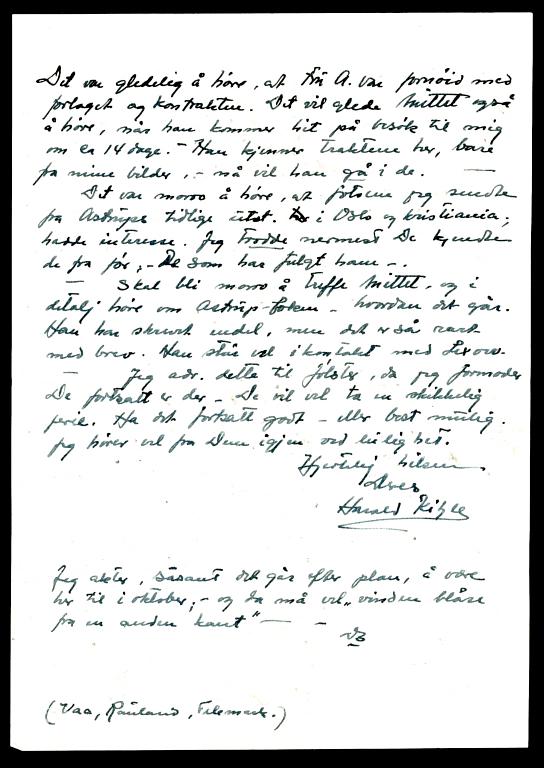 Det var gledelig å höre, at Fru A. var fornöid med
forlaget og kontrakten. Det vil glede Mittet også
å höre, når han kommer hit på besök til mig
om ca 14 dage. – Han kjenner traktene her, bare
fra mine bilder, – nå vil han gå i de. —
Det var moro å höre, at fotoene jeg sendte
fra Astrups tidlige utst. i Oslo og Kristiania;
hadde interesse. Jeg trodde nærmest De kjendte
de fra för, – De som har fulgt ham –.
— Skal bli moro å treffe Mittet, og i
detalj höre om Astrup-boken – hvordan det går.
Han har skrevet endel, men det er så rart
med brev. Han står vel i kontakt med Lexow.
— Jeg adr. dette til Jölster, da jeg formoder
De fortsatt er der – De vil vel ta en skikkelig
ferie. Ha det fortsatt godt – eller best mulig.
Jeg hörer vel fra Dem igjen ved leilighet.
Hjertelig hilsen
Deres
Harald Kihle
Jeg akter, såsant det går efter plan, å være
her til i oktober; – og da må vel "vinden blåse
fra en anden kant" — –
(Vaa, Rauland, Telemark.)